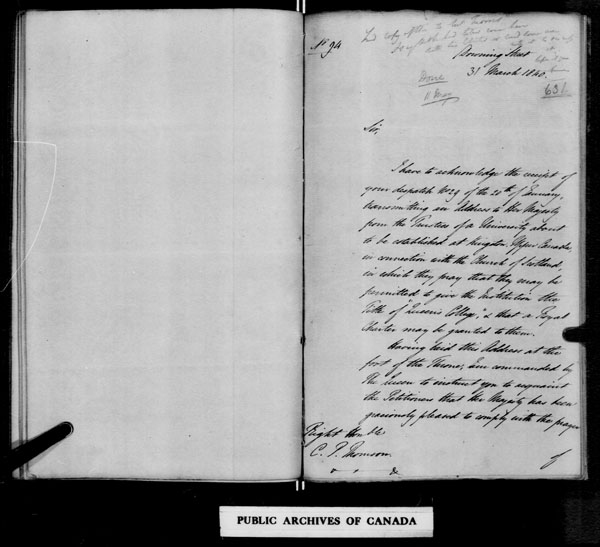 No 94
Downing Street
31 March 1840.
Done
11 May
631
Sir,
I have to acknowledge the receipt of
your despatch No 29 of the 20th of January,
transmitting an Address to Her Majesty
from the Trustees of a University about
to be established at Kingston Upper Canada,
in connection with the Church of Scotland,
in which they pray that they may be
permitted to give the Institution the
Title of "Queen's College", & that a Royal
Charter may be granted to them.
Having laid this Address at the
foot of the Throne, I am commanded by
The Queen to instruct you to acquaint
the Petitioners that Her Majesty has been
graciously pleased to comply with the prayer
of
Right Honble
C. P. Thomson
&c
PUBLIC ARCHIVES OF CANADA